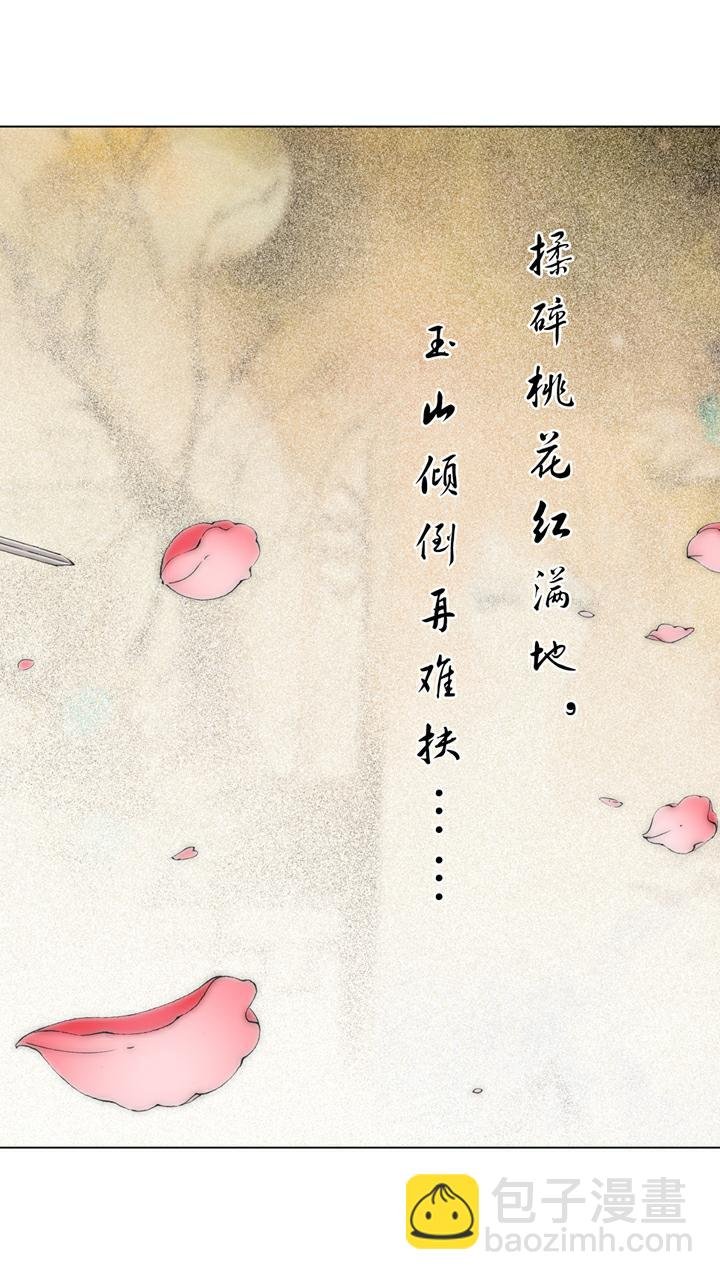 揉碎桃花红满地，
玉山倾倒再难扶……
包子漫畫
baozimh.com